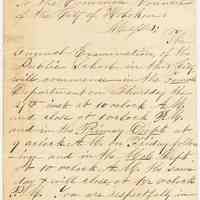 To the Common Council
of the City of Hoboken
The
Annual Examination of the
Public School in this City
will commence in the
Department on Thursday the
inst at 10 oclock A.M.
and close at 12 oclock P.M.
and in the Primary Dept at
9 oclock A.M. on Friday follow
ing and in the Dept.
at 10 oclock A.M. the same
day & will close at 12 oclock
P.M. You are respectfully in